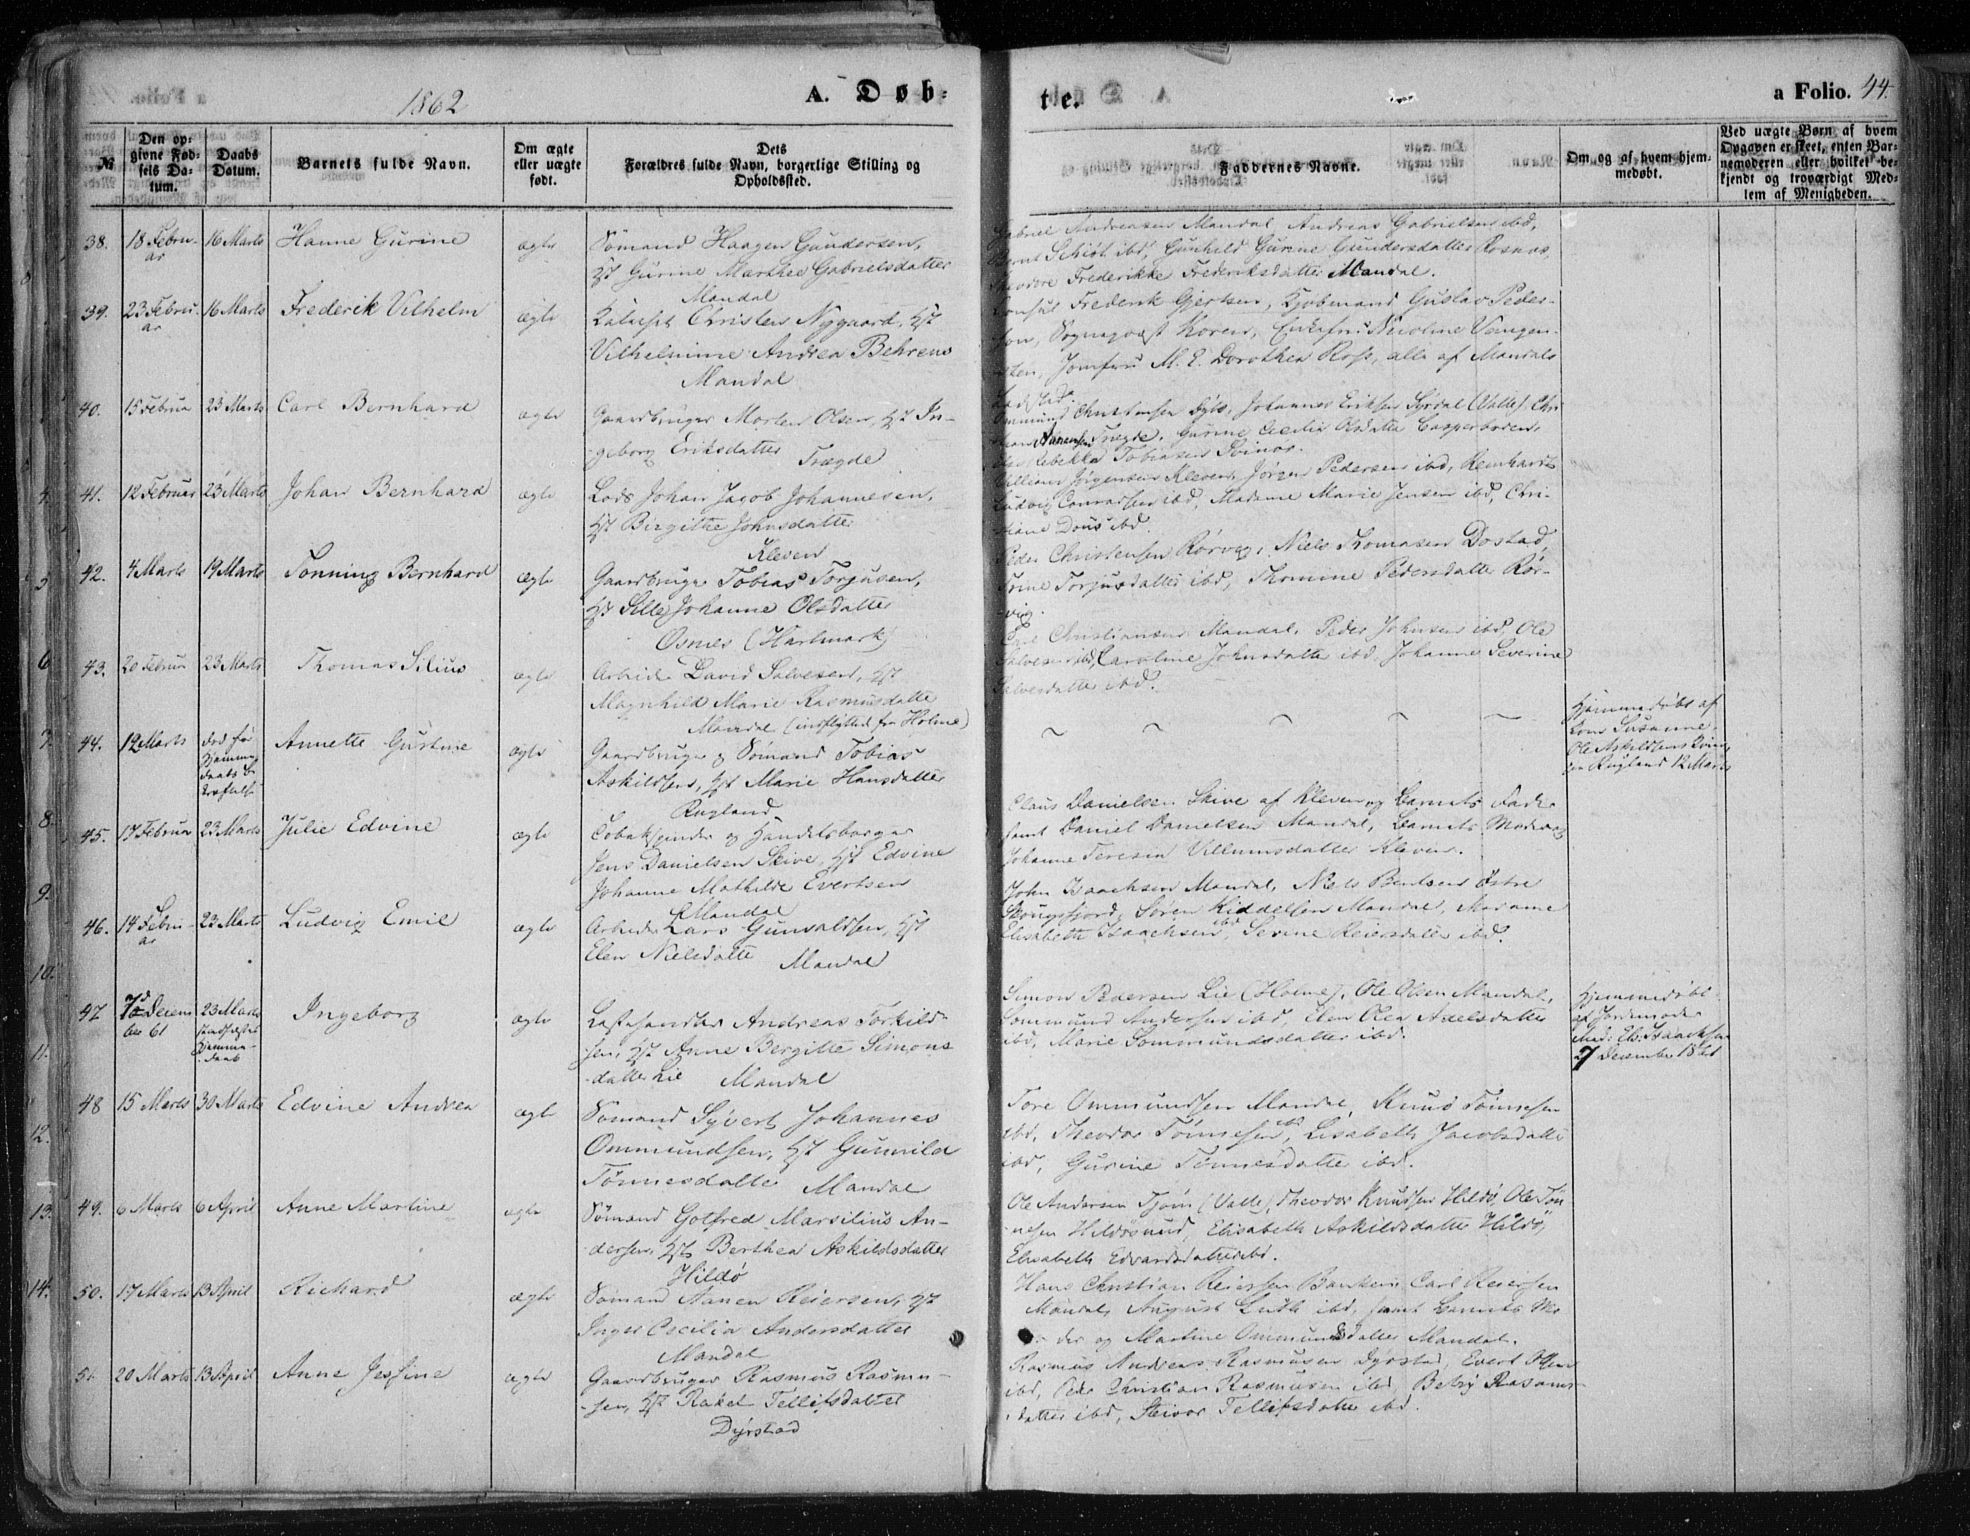 1862
A. Døb-
te.
a Folio. 44.
№
Den op-
givne Fød-
sels Da-
tum.
Daabs
Datum.
Barnets fulde Navn.
Om ægte
eller uægte
født.
Dets
Forældres fulde Navn, borgerlige Stilling og
Opholdssted.
Faddernes Navne.
Om og af hvem hjem-
medøbt.
Ved uægte Børn af hvem
Opgaven er skeet, enten Bar-
nemoderen eller hvilket be-
kjendt og troværdigt Med-
lem af Menigheden.
38. 18 Febru- 16 Marts Hanne Gurine ægte Sømand Haagen Gundersen,
ar
Hst Gurine Marthea Gabrielsdatter
Mandal
Gabriel Andreasen Mandal, Andreas Gabrielsen ibd,
Bernt Schiøt ibd, Gunhild Gurine Gundersdatter Rosnes,
Theodore Frederikke Frederiksdatter Mandal.
39. 23 Febru- 16 Marts Frederik Vilhelm ægte Christen Nygaard, Hst
ar
Vilhelmine Andrea Behrens
Mandal
Consul Frederik Gjertsen, Kjøbmand Gustav Peder-
sen, Sogneprest Koren, Enkefru Nicoline Wengen-
sten, Jomfru M. E. Dorothea Ross, alle af Mandals
Ladsted.
40. 15 Februar 23 Marts Carl Bernhard ægte Gaardbruger Morten Olsen, Hst In-
geborg Eriksdatter
Trægde
Ommund Christensen Johannes Eriksen Syrdal (Valle), Chri-
Aanensen Trægde, Gurine Cecilia Casperboden,
Rebekka Tobiasen Svinør.
41. 12 Februar 23 Marts Johan Bernhard ægte Lods Johan Jacob Johannesen,
Hst Birgitte Johnsdatter
Kleven
Villum Jørgensen Kleven, Jørgen Pedersen ibd, Reinhardt
Ludvig Conradsen ibd, Madame Marie Jensen ibd, Chri-
stiane Dous ibd.
42. 4 Marts 19 Marts Tønning Bernhard ægte Gaardbruger Tobias Torjusen,
Hst Sille Johanne Olsdatter
Osnes (Hartmark)
Peder Christensen Rørvig, Niels Thomasen Dostad
Trine Torjusdatter ibd, Thomine Pedersdatter Rør-
vig.
43. 20 Februar 23 Marts Thomas Silius ægte Arbeider David Salvesen, Hst
Magnhild Marie Rasmusdatter
Mandal (indflyttet fra Holme)
Christiansen Mandal, Peder Johnsen ibd, Ole
Salvesen ibd, Caroline Johnsdatter ibd, Johanne Severine
Salvesdatter ibd.
44. 12 Marts død før
Hjemme-
daabs be-
kræftelse
Annette Gustine ægte Gaardbruger & Sømand Tobias
Askildsen, Hst Marie Hansdatter
Rugland
Hjemmedøbt af
Kone Susanne
Ole Askildsens
Rugland 12 Marts
45. 17 Februar 23 Marts Julie Edvine ægte Tobakspinder og Handelsborger
Jens Danielsen Skive, Hst Edvine
Johanne Mathilde Evertsen
Mandal
Claus Danielsen Skive af Kleven og Barnets Fader
samt Daniel Danielsen Mandal, Barnets Moder og
Johanne Teresia Villumsdatter Kleven.
46. 14 Febru- 23 Marts Ludvig Emil ægte Arbeider Lars Gunvaldsen, Hst
ar
Elen Nielsdatter Mandal
John Isaachsen Mandal, Niels Bentsen Østre
Skougsfjord, Søren Kiddelsen Mandal, Madame
Elisabeth Isaachsen ibd, Sevine Reiersdatter ibd.
47. 7d Decem- 23 Marts
ber 61 stadfæstet
Hjemme-
daab
Ingeborg ægte Lastehandler Andreas Torkild-
sen, Hst Anne Bergitte Simons-
datter Lie Mandal
Simon Pedersen Lie (Holme), Ole Olsen Mandal,
Sommund Andersen ibd, Elen Olea Axelsdatter
ibd, Marie Sommundsdatter ibd.
Hjemmedøbt
af Jordemoder
Mad: El: Isaachsen
7 December 1861
48 15 Marts 30 Marts Edvine Andrea ægte Sømand Syvert Johannes
Ommundsen, Hst Gunnild
Tønnesdatter Mandal
Tore Ommundsen Mandal, Knud Tønnesen
ibd, Theodor Tønnesen ibd, Lisabeth Jacobsdatter
ibd, Gurine Tønnesdatter ibd.
49. 6 Marts 6 April Anne Martine ægte Sømand Gotfred Marsilius An-
dersen, Hst Berthea Askildsdatter
Hildø
Ole Andersen Tjøm (Valle), Theodor Knudsen Hildø, Ole Tøn-
nesen Hildøsund, Elisabeth Askildsdatter Hildø,
Elisabeth Edvardsdatter ibd.
50. 17 Marts 13 April Richard ægte Sømand Aanen Reiersen, Hst
Inger Cecilia Andersdatter
Mandal
Hans Christian Reiersen Banken, Carl Reiersen
Mandal, August Luth ibd, samt Barnets Mo-
der og Martine Ommundsdatter Mandal.
51. 20 Marts 13 April Anne Jessine ægte Gaardbruger Rasmus Rasmu-
sen, Hst Rakel Tellefsdatter
Dyrstad
Rasmus Andreas Rasmusen Dyrstad, Evert Olsen
ibd, Peder Christian Rasmusen ibd, Betsy Rasmus-
datter ibd, Steivor Tellefsdatter ibd.